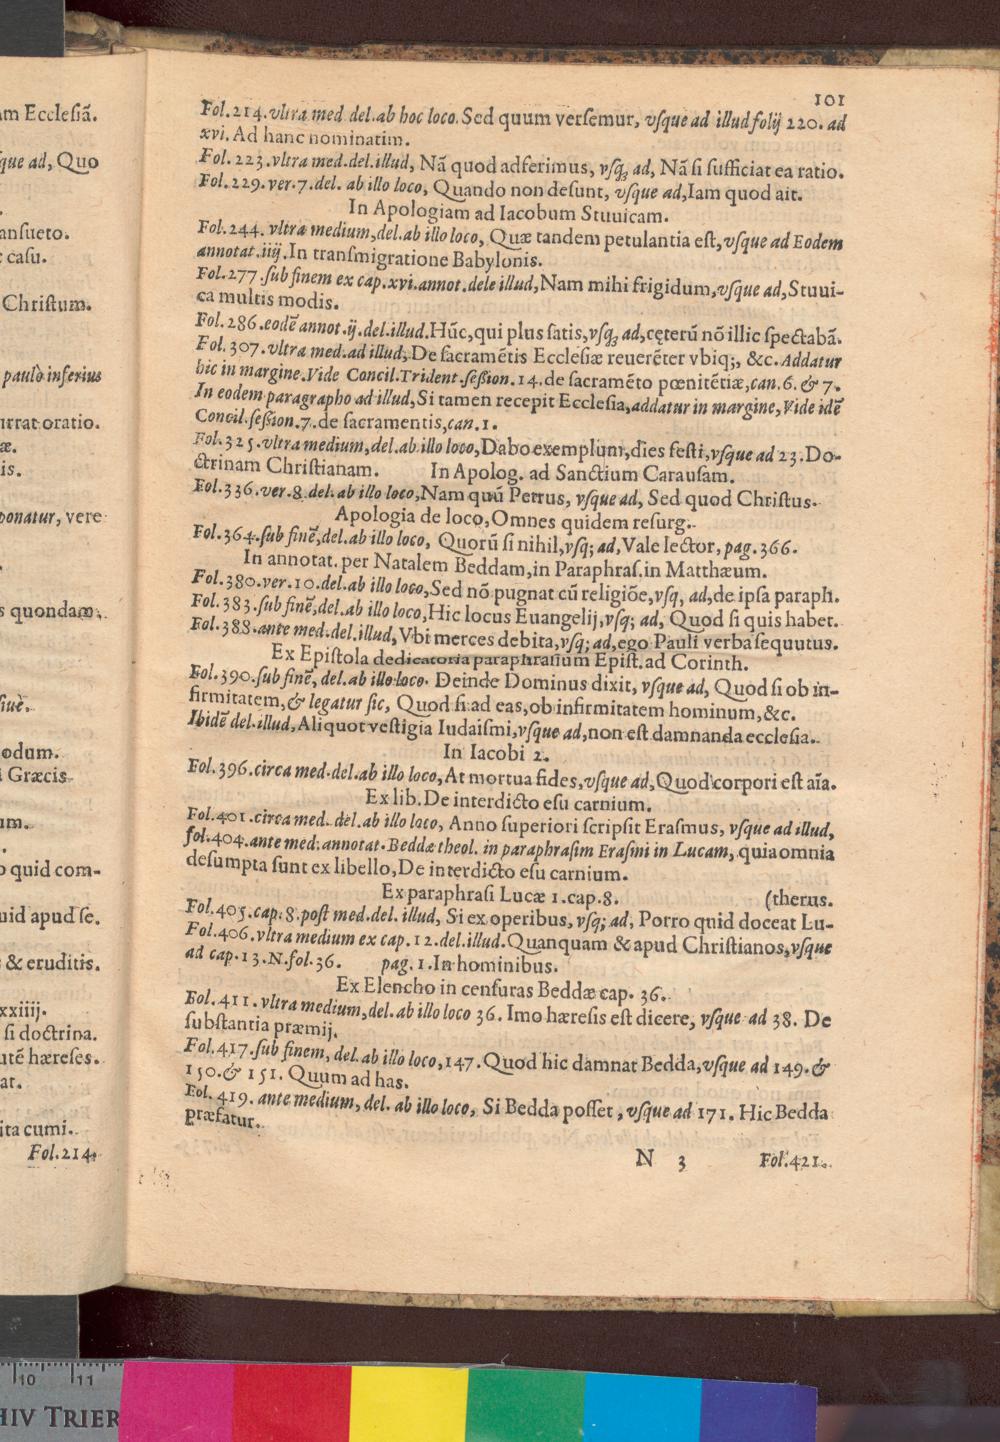 am Ecclesiã.
sque ad, Quo
ansueto.
casu.
Christum.
paulò inferius
errat oratio.
æ.
is.
ponatur, vere
s quondam.
siuè.
odum.
i Græcis
um.
o quid com-
uid apud se.
& eruditis.
xxiiij.
si doctrina.
utẽ hæreses.
at.
ita cumi.
Fol.214.
101
Fol.214.vltra med del.ab hoc loco.Sed quum versemur, vsque ad illud folij 220. ad
xvi.Ad hanc nominatim.
Fol.223.vltra med.del.illud, Nã quod adferimus, vsq; ad, Nã si sufficiat ea ratio.
Fol.229.ver.7.del. ab illo loco, Quando non desunt, vsque ad,Iam quod ait.
In Apologiam ad Iacobum Stuuicam.
Fol.244. vltra medium,del.ab illo loco, Quæ tandem petulantia est,vsque ad Eodem
annotat.iiij.In transmigratione Babylonis.
Fol.277.sub finem ex cap.xvi.annot.dele illud,Nam mihi frigidum,vsque ad,Stuui-
ca multis modis.
Fol.286.eodẽ annot.ij.del.illud.Hũc,qui plus satis,vsq; ad,cęterũ nõ illic spectabã.
Fol.307.vltra med.ad illud,De sacramẽtis Ecclesiæ reuerẽter vbiq;, &c.Addatur
hic in margine.Vide Concil.Trident.session.14.de sacramẽto pœnitẽtiæ,can.6.& 7.
In eodem paragrapho ad illud,Si tamen recepit Ecclesia,addatur in margine,Vide idẽ
Concil.session.7.de sacramentis,can.1.
Fol.325.vltra medium,del.ab illo loco,Dabo exemplum,dies festi,vsque ad 23.Do-
ctrinam Christianam. In Apolog. ad Sanctium Carausam.
Fol.336.ver.8.del.ab illo loco,Nam quũ Petrus, vsque ad, Sed quod Christus.
Apologia de loco,Omnes quidem resurg.
Fol.364.sub finẽ,del.ab illo loco, Quorũ si nihil,vsq; ad,Vale lector,pag.366.
In annotat. per Natalem Beddam,in Paraphras.in Matthæum.
Fol.380.ver.10.del.ab illo loco,Sed nõ pugnat cũ religiõe,vsq, ad,de ipsa paraph.
Fol.383.sub finẽ,del.ab illo loco,Hic locus Euangelij,vsq; ad, Quod si quis habet.
Fol.388.ante med.del.illud,Vbi merces debita,vsq; ad,ego Pauli verba sequutus.
Ex Epistola dedicatoria paraphrasium Epist.ad Corinth.
Fol.390.sub finẽ, del.ab illo loco. Deinde Dominus dixit, vsque ad, Quod si ob in-
firmitatem,& legatur sic, Quod si ad eas,ob infirmitatem hominum,&c.
Ibidẽ del.illud,Aliquot vestigia Iudaismi,vsque ad,non est damnanda ecclesia.
In Iacobi 2.
Fol.396.circa med.del.ab illo loco,At mortua fides,vsque ad,Quod corpori est aĩa.
Ex lib.De interdicto esu carnium.
Fol.401.circa med. del.ab illo loco, Anno superiori scripsit Erasmus, vsque ad illud,
fol.404.ante med.annotat.Beddæ theol. in paraphrasim Erasmi in Lucam, quia omnia
desumpta sunt ex libello,De interdicto esu carnium.
Ex paraphrasi Lucæ 1.cap.8. (therus.
Fol.405.cap.8.post med.del. illud, Si ex operibus, vsq; ad, Porro quid doceat Lu-
Fol.406.vltra medium ex cap.12.del.illud.Quanquam & apud Christianos,vsque
ad cap.13.N.fol.36. pag.1.In hominibus.
Ex Elencho in censuras Beddæ cap. 36.
Fol.411.vltra medium,del.ab illo loco 36. Imo hæresis est dicere, vsque ad 38. De
substantia præmij.
Fol.417.sub finem, del.ab illo loco,147.Quod hic damnat Bedda,vsque ad 149.&
150.& 151. Quum ad has.
Fol.419. ante medium, del. ab illo loco, Si Bedda posset, vsque ad 171. Hic Bedda
præfatur.
N 3 Fol.421.
10 11
HIV TRIER